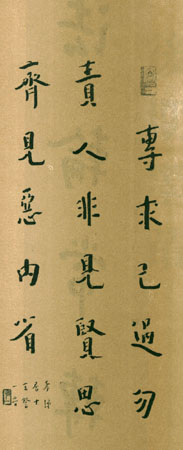 專求己過勿
責人非見賢思
齊見惡內省